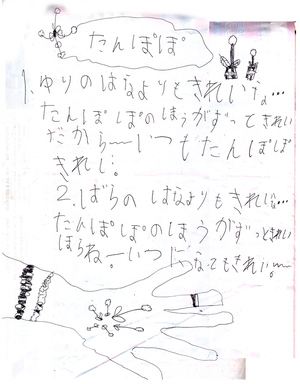 たんぽぽ
1.ゆりのはなよりもきれいな…
たんぽぽのほうがずっときれい
だから〜いつもたんぽぽ
きれい。
2.ばらのはなよりもきれいな…
たんぽぽのほうがずっときれい
ほらねーいつ
なってもきれい。